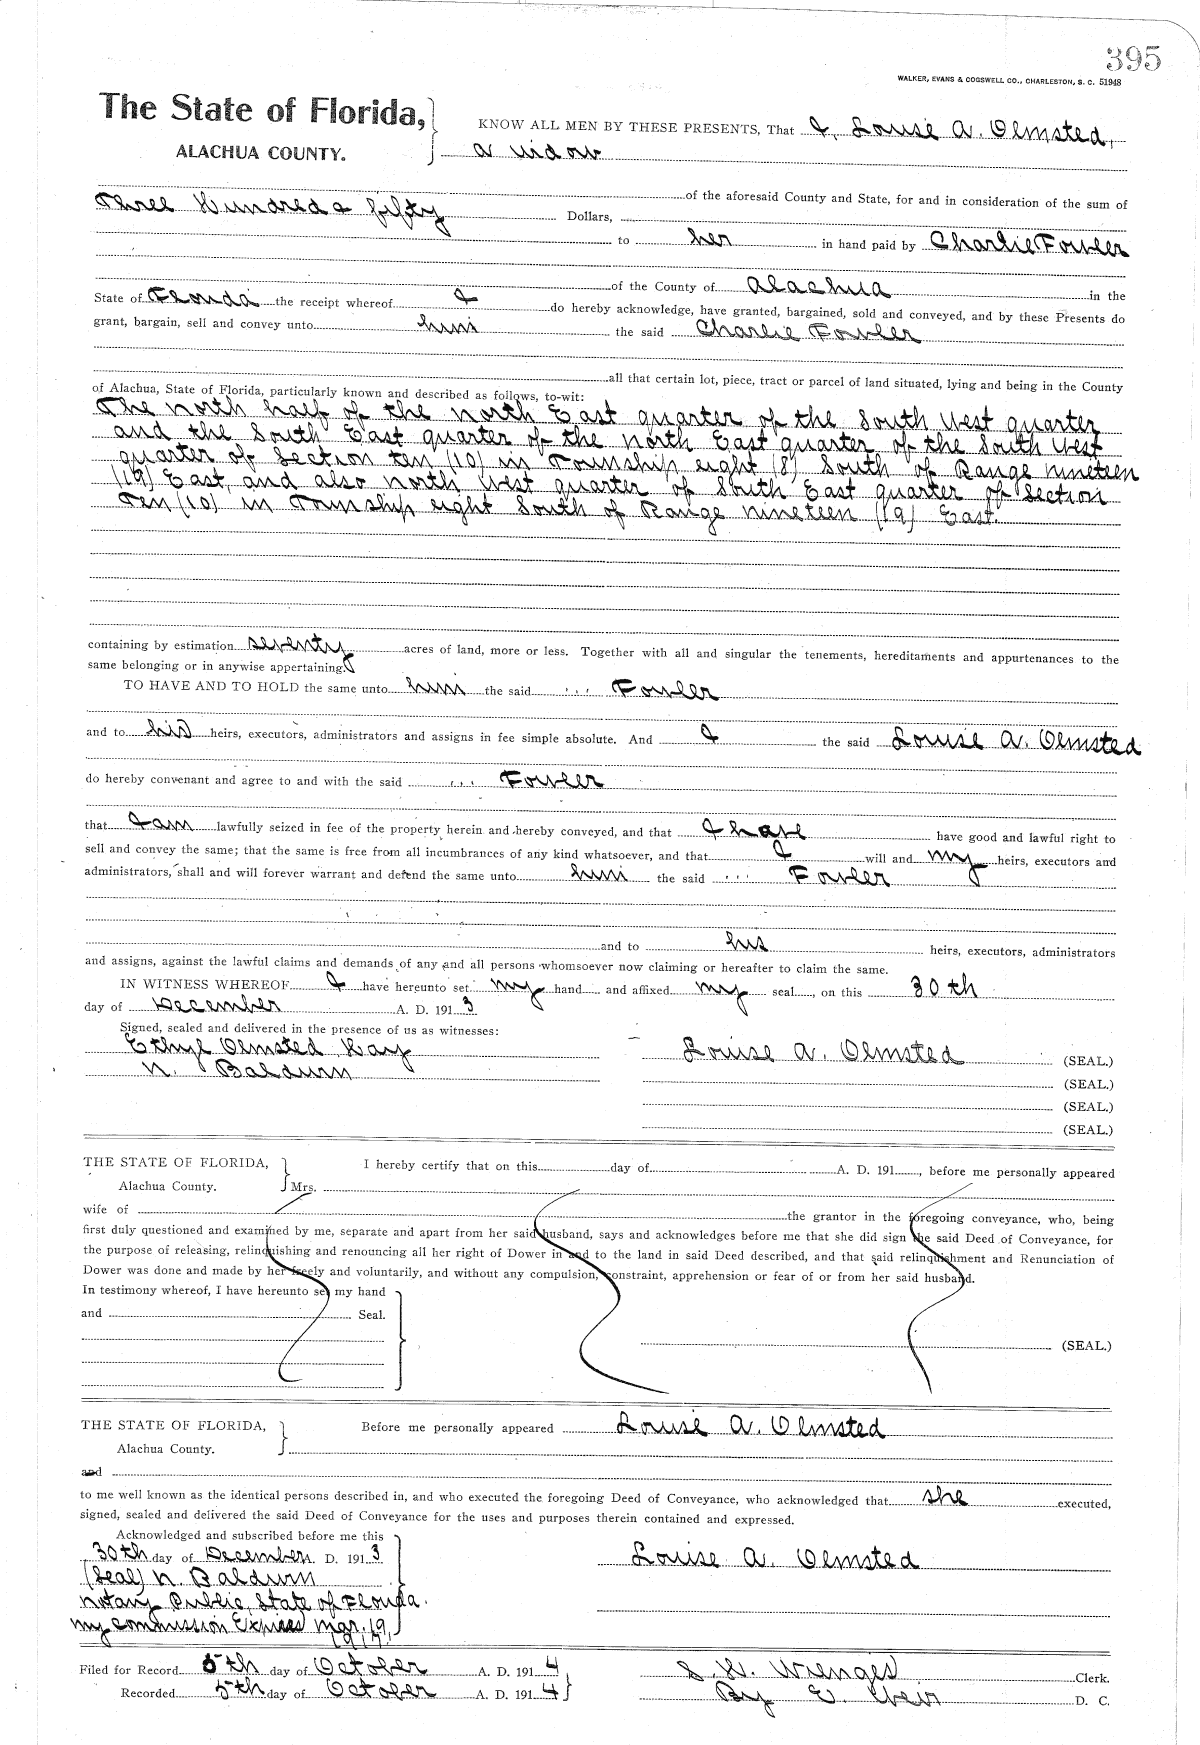 395
WALKER, EVANS & COGSWELL CO., CHARLESTON, S. C. 51948
The State of Florida,
ALACHUA COUNTY.
KNOW ALL MEN BY THESE PRESENTS, That I, Louise A. Olmsted,
a widow
of the aforesaid County and State, for and in consideration of the sum of
Three Hundred & fifty Dollars,
to her in hand paid by Charlie Fowler
of the County of Alachua in the
State of Florida the receipt whereof I do hereby acknowledge, have granted, bargained, sold and conveyed, and by these Presents do
grant, bargain, sell and convey unto him the said Charlie Fowler
all that certain lot, piece, tract or parcel of land situated, lying and being in the County
of Alachua, State of Florida, particularly known and described as follows, to-wit:
The north half of the north East quarter of the South West quarter
and the South East quarter of the north East quarter of the South West
quarter of Section ten (10) in Township eight (8) South of Range nineteen
(19) East, and also north West quarter of South East quarter of Section
Ten (10) in Township eight South of Range nineteen (19) East.
containing by estimation seventy acres of land, more or less. Together with all and singular the tenements, hereditaments and appurtenances to the
same belonging or in anywise appertaining.
TO HAVE AND TO HOLD the same unto him the said Fowler
and to his heirs, executors, administrators and assigns in fee simple absolute. And I the said Louise A. Olmsted
do hereby convenant and agree to and with the said Fowler
that I am lawfully seized in fee of the property herein and hereby conveyed, and that I have have good and lawful right to
sell and convey the same; that the same is free from all incumbrances of any kind whatsoever, and that I will and my heirs, executors and
administrators, shall and will forever warrant and defend the same unto him the said Fowler
and to his heirs, executors, administrators
and assigns, against the lawful claims and demands of any and all persons whomsoever now claiming or hereafter to claim the same.
IN WITNESS WHEREOF I have hereunto set my hand and affixed my seal, on this 30th
day of December A. D. 1913
Signed, sealed and delivered in the presence of us as witnesses:
Ethyl Olmsted Kay
N. Baldwin
Louise A. Olmsted (SEAL.)
(SEAL.)
(SEAL.)
(SEAL.)
THE STATE OF FLORIDA,
Alachua County.
I hereby certify that on this day of A. D. 191, before me personally appeared
Mrs.
wife of the grantor in the foregoing conveyance, who, being
first duly questioned and examined by me, separate and apart from her said husband, says and acknowledges before me that she did sign the said Deed of Conveyance, for
the purpose of releasing, relinquishing and renouncing all her right of Dower in and to the land in said Deed described, and that said relinquishment and Renunciation of
Dower was done and made by her freely and voluntarily, and without any compulsion, constraint, apprehension or fear of or from her said husband.
In testimony whereof, I have hereunto set my hand
and Seal.
(SEAL.)
THE STATE OF FLORIDA,
Alachua County.
Before me personally appeared Louise A. Olmsted
and
to me well known as the identical persons described in, and who executed the foregoing Deed of Conveyance, who acknowledged that she executed,
signed, sealed and delivered the said Deed of Conveyance for the uses and purposes therein contained and expressed.
Acknowledged and subscribed before me this
30th day of December A. D. 1913
Louise A. Olmsted
(Seal) N Baldwin
Notary Public, State of Florida.
my commission Expires Mar. 19,
1917,
Filed for Record 5th day of October A. D. 1914
S. H. Wienges Clerk.
Recorded 5th day of October A. D. 1914
By E. Weir D. C.